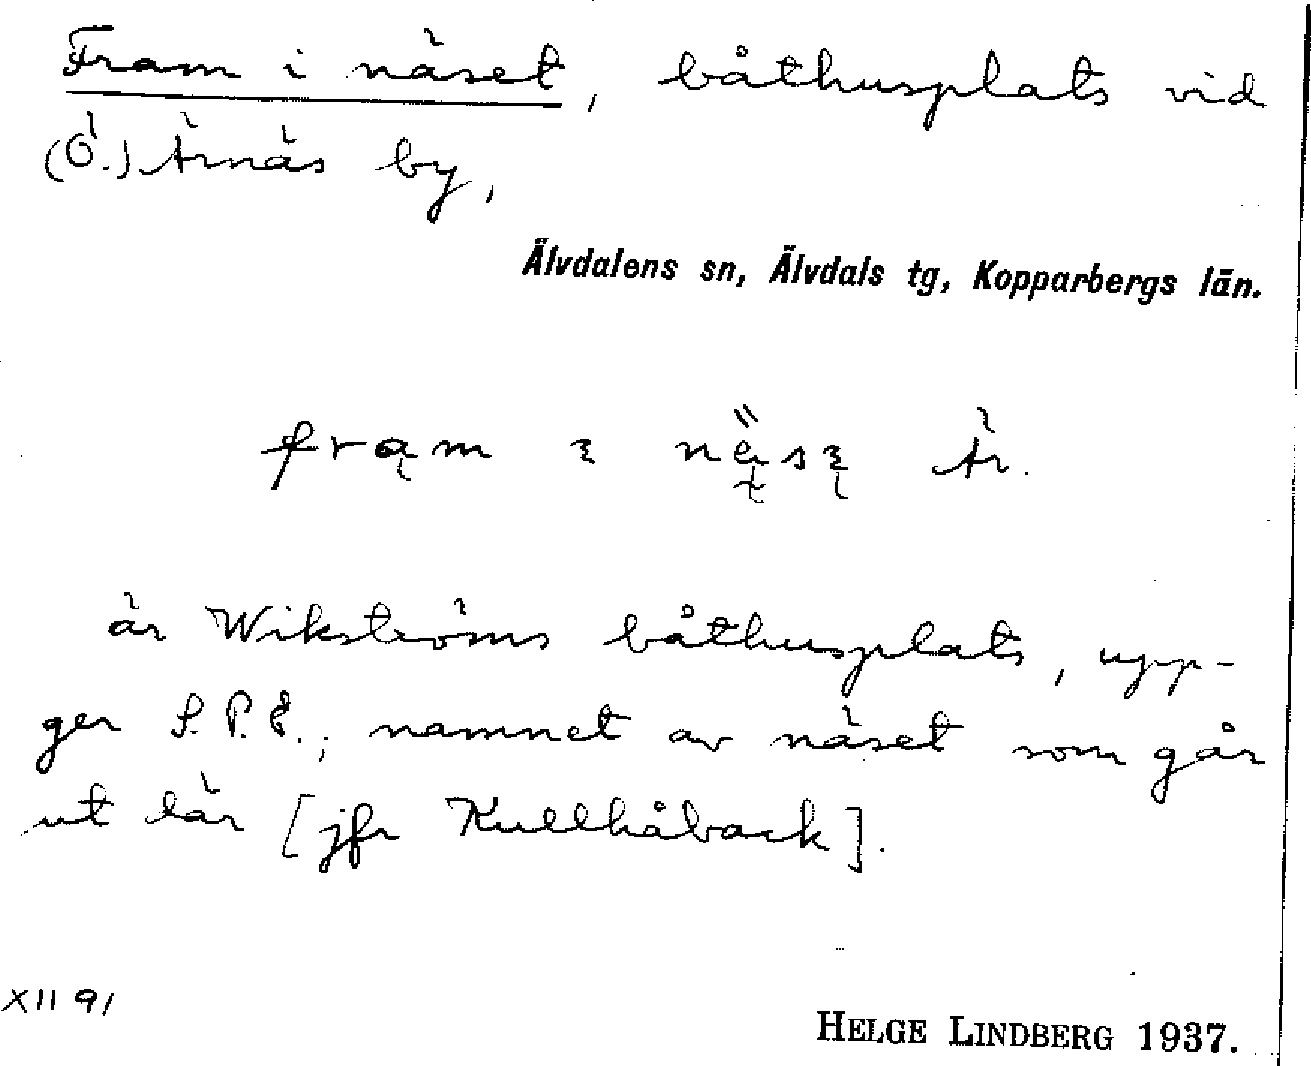 Fram i näset, båthusplats vid
(Ö.) Ärnäs by,
Älvdalens sn, Älvdals tg, Kopparbergs län.
fram Är.
är Wikströms båthusplats, upp-
ger S.P.E.; namnet av näset som går
ut här [jfr Kullhåback].
XII 91
HELGE LINDBERG 1937.